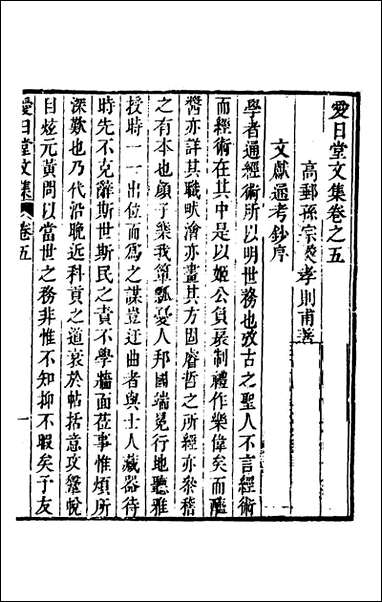 愛日堂文集卷之五
高郵孫宗彝孝則甫著
文獻通考鈔序
學者通經術所以明世務也攷古之聖人不言經術
而經術在其中是以姬公負扆制禮作樂偉矣而醢
醬亦詳其職畎澮亦畫其方固睿哲之所經亦黎稽
之有本也顏子樂我簞瓢憂人邦國端冕行地聽雅
授時一一出位而為之謀豈迂曲者與士人藏器待
時先不克辭斯世斯民之責不學牆面莅事惟煩所
深歎也乃代沿晚近科貢之道衰於帖括意攻鞶帨
目炫元黃問以當世之務非惟不知抑不暇矣予友
愛日堂文集
卷五
一